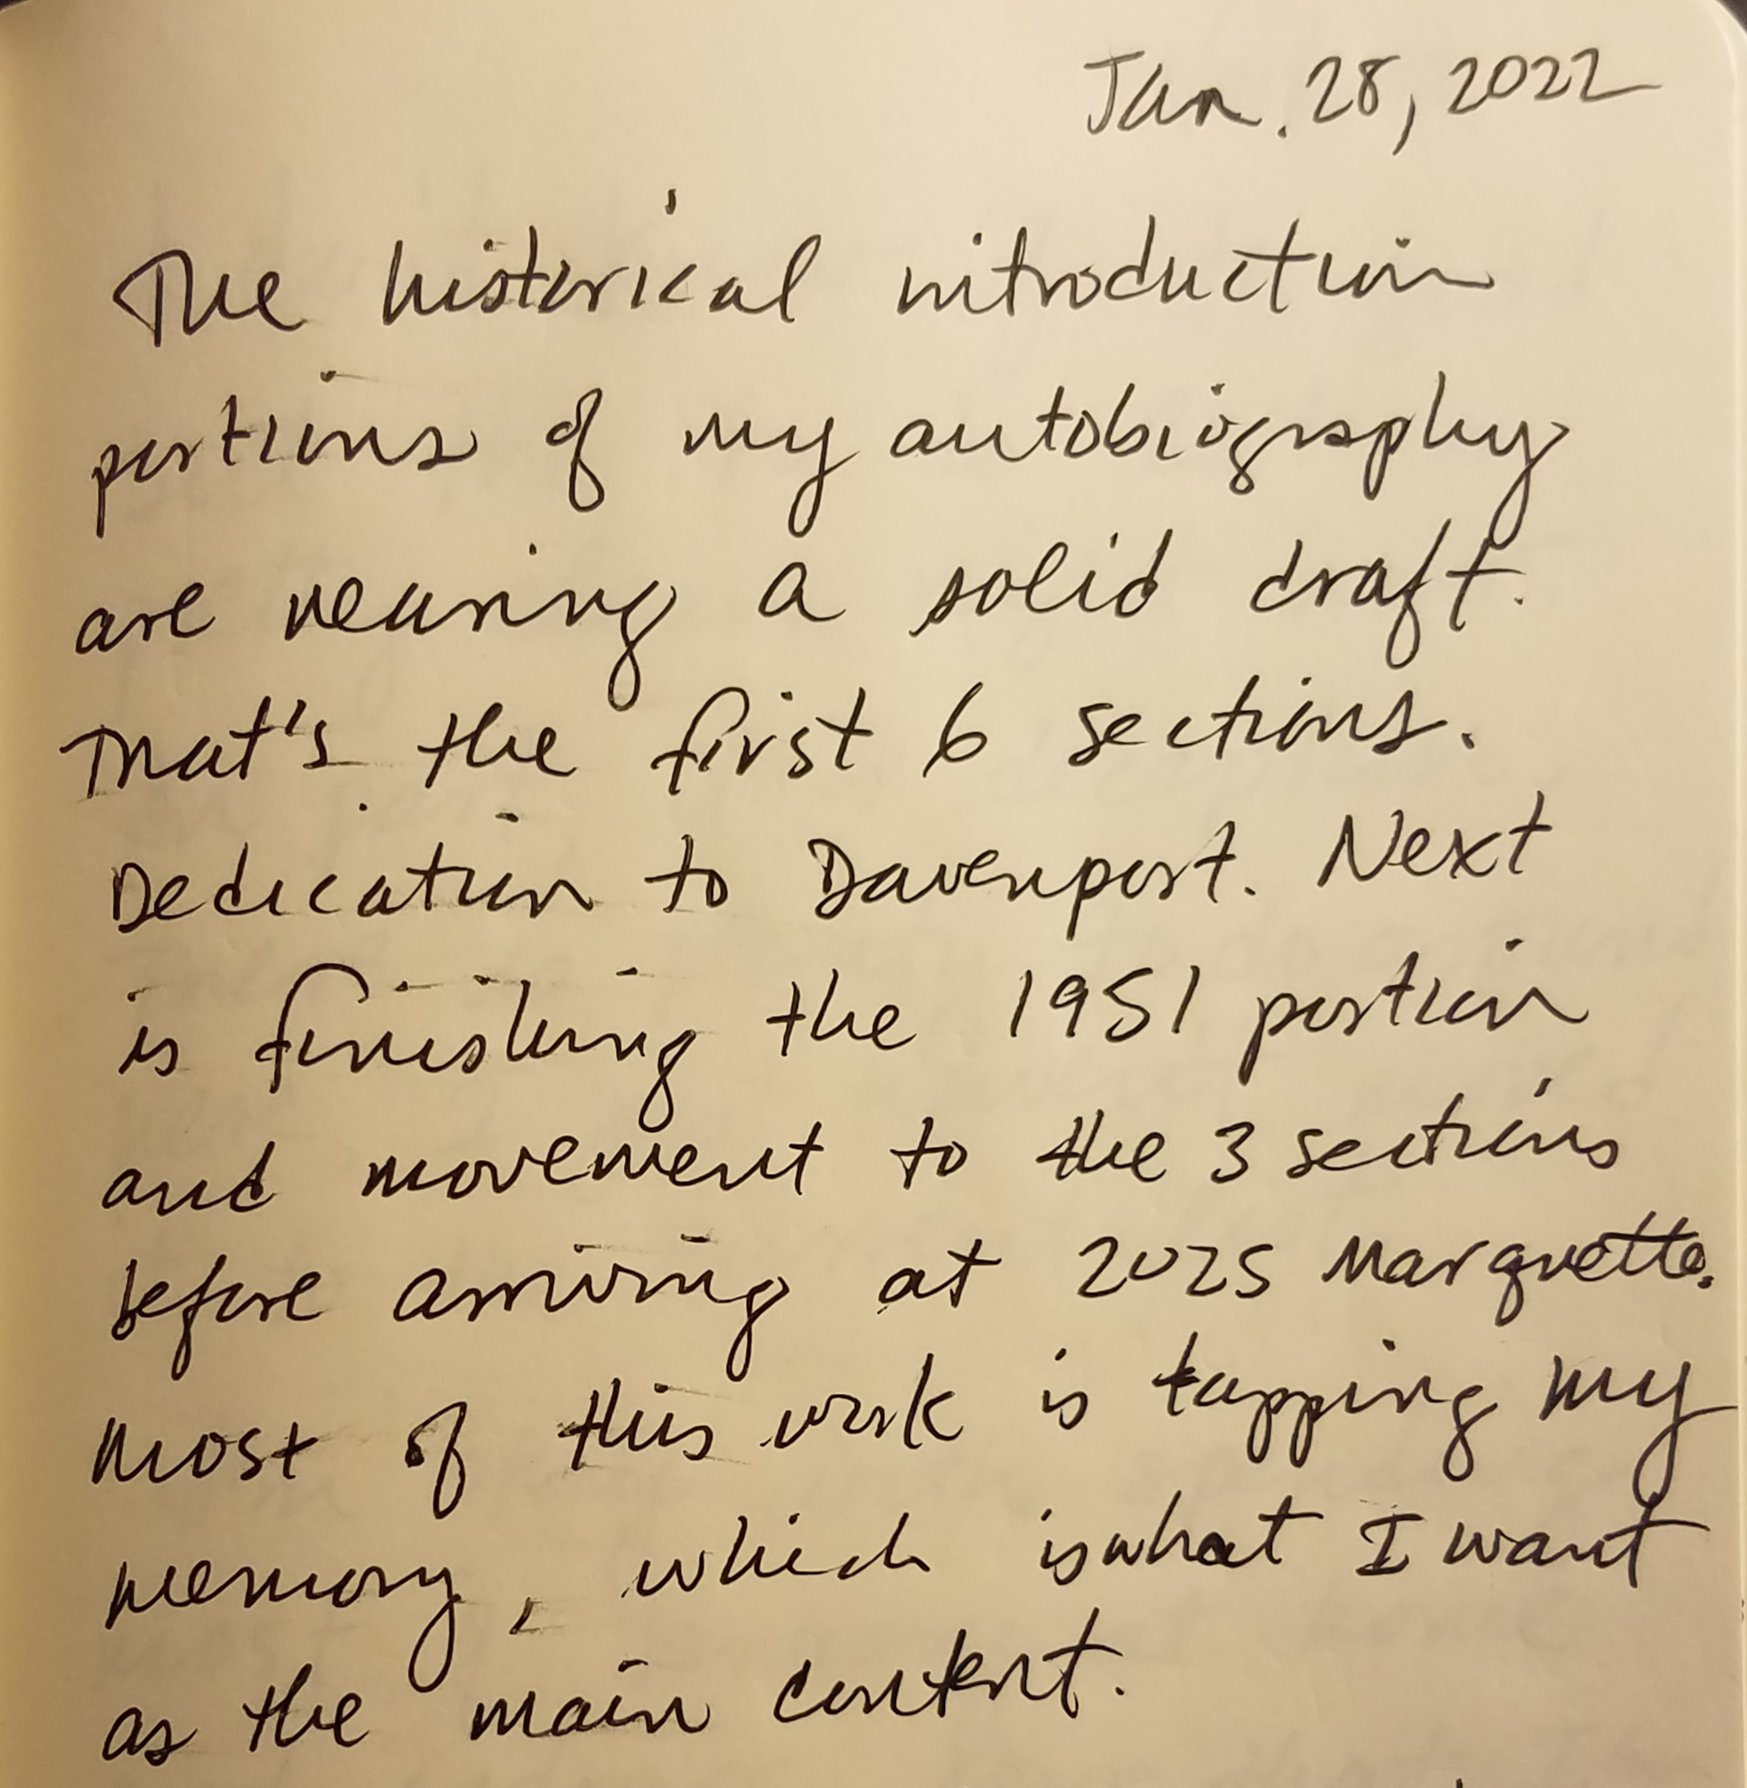 Jan. 28, 2022
The historical introduction
portions of my autobiography
are nearing a solid draft.
That's the first 6 sections.
Dedication to Davenport. Next
is finishing the 1951 portion
and movement to the 3 sections
before arriving at 2025 Marquette.
Most of this work is tapping my
memory, which is what I want
as the main content.